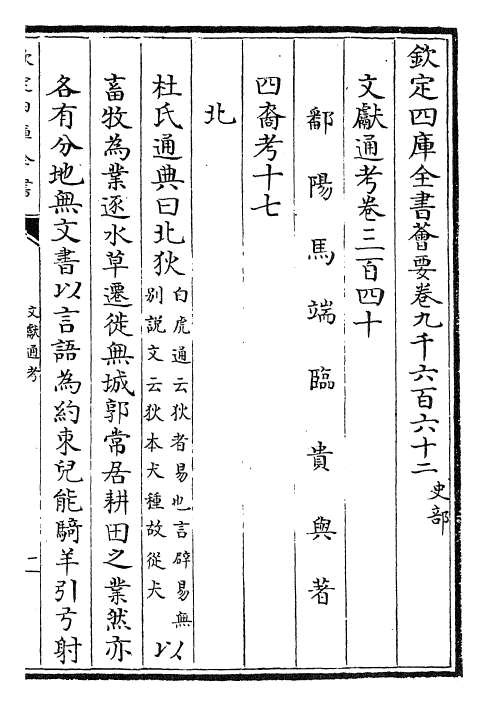 欽定四庫全書薈要卷九千六百六十二 史部
文獻通考卷三百四十
鄱陽馬端臨貴與著
四裔考十七
北
杜氏通典曰北狄 白虎通云狄者易也言辟易無
別說文云狄本犬種故從犬 以
畜牧為業逐水草遷徙無城郭常居耕田之業然亦
各有分地無文書以言語為約束兒能騎羊引弓射
欽定四庫全書
文獻通考
一